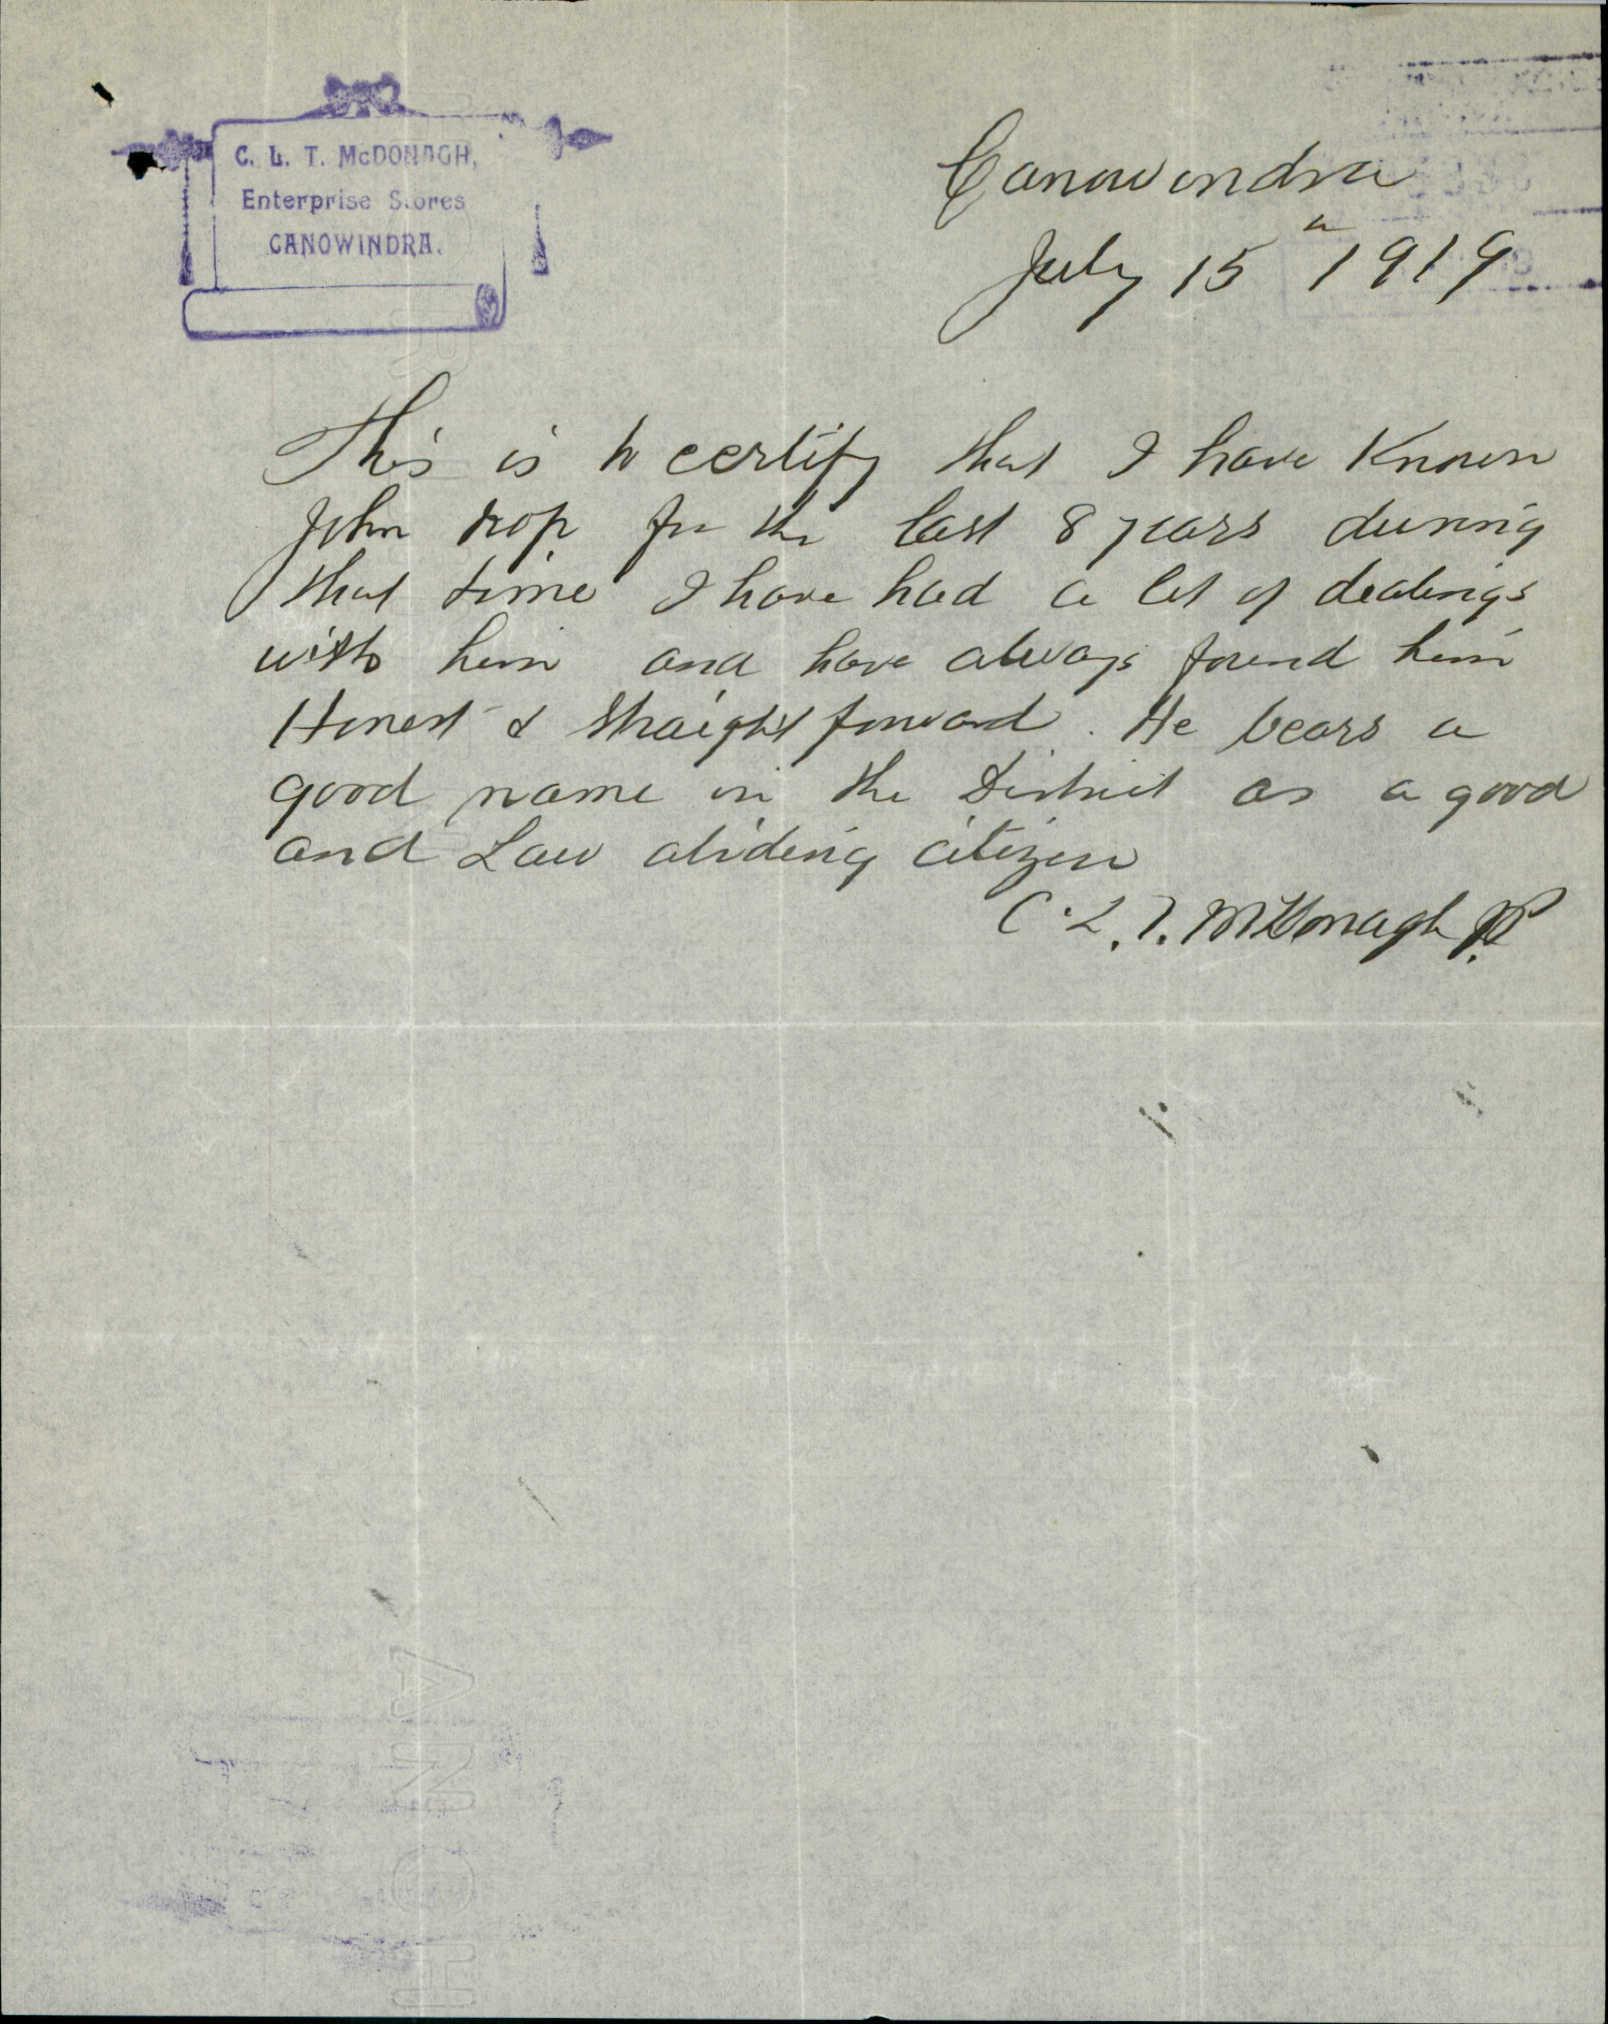 C. L. T. McDONAGH,
Enterprise Stores
CANOWINDRA.
Canowindra
July 15 1919
This is to certify that I have Known
John for the last 8 years during
that time I have had a lot of dealings
with him and have always found him
Honest & straight forward. He bears a
good name in the District as a good
and Law abiding citizen
C. L. T. McDonagh J.P.